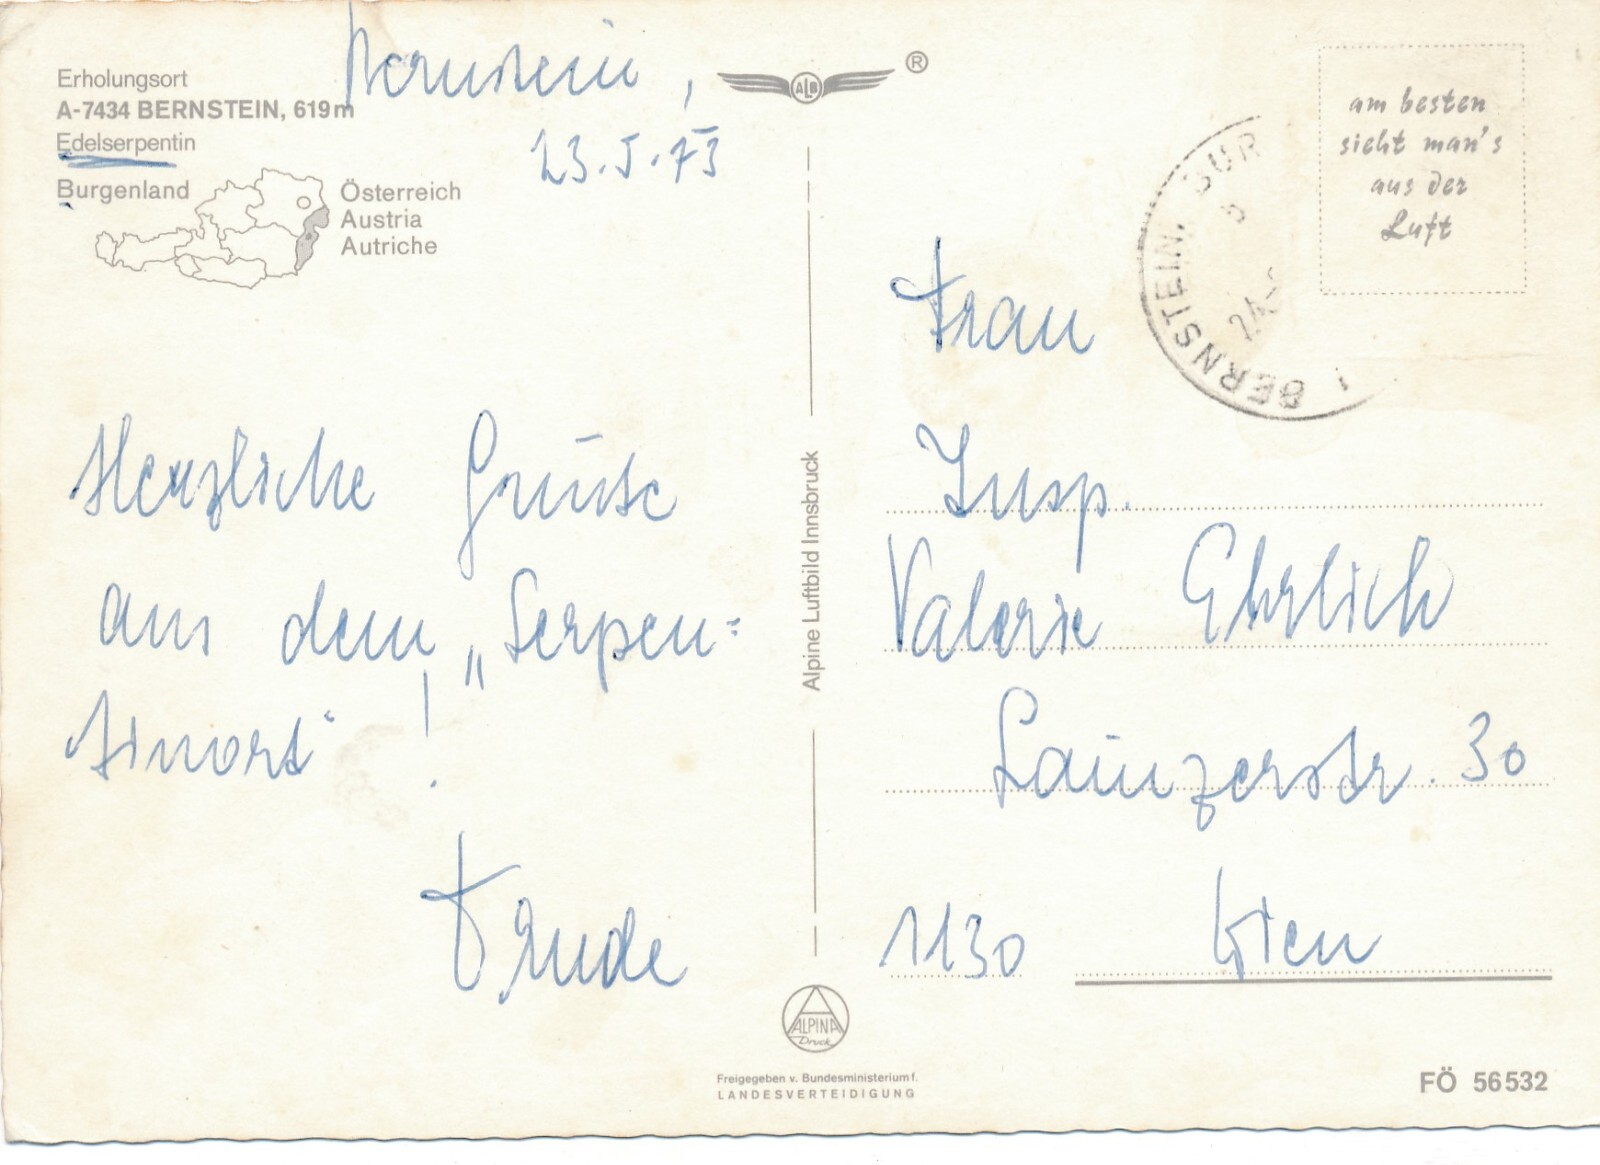 Erholungsort
A-7434 BERNSTEIN, 619 m
Edelserpentin
Burgenland
Österreich
Austria
Autriche
Bernstein,
23.5.73
Herzliche Grüße
aus dem „Serpen=
tinort“!
Trude
ALB
®
Alpine Luftbild Innsbruck
ALPINA
Druck
Freigegeben v. Bundesministerium f.
LANDESVERTEIDIGUNG
am besten
sieht man's
aus der
Luft
BERNSTEIN, BUR
Frau
Insp.
Valerie Ehrlich
Lainzerstr. 30
1130 Wien
FÖ 56532